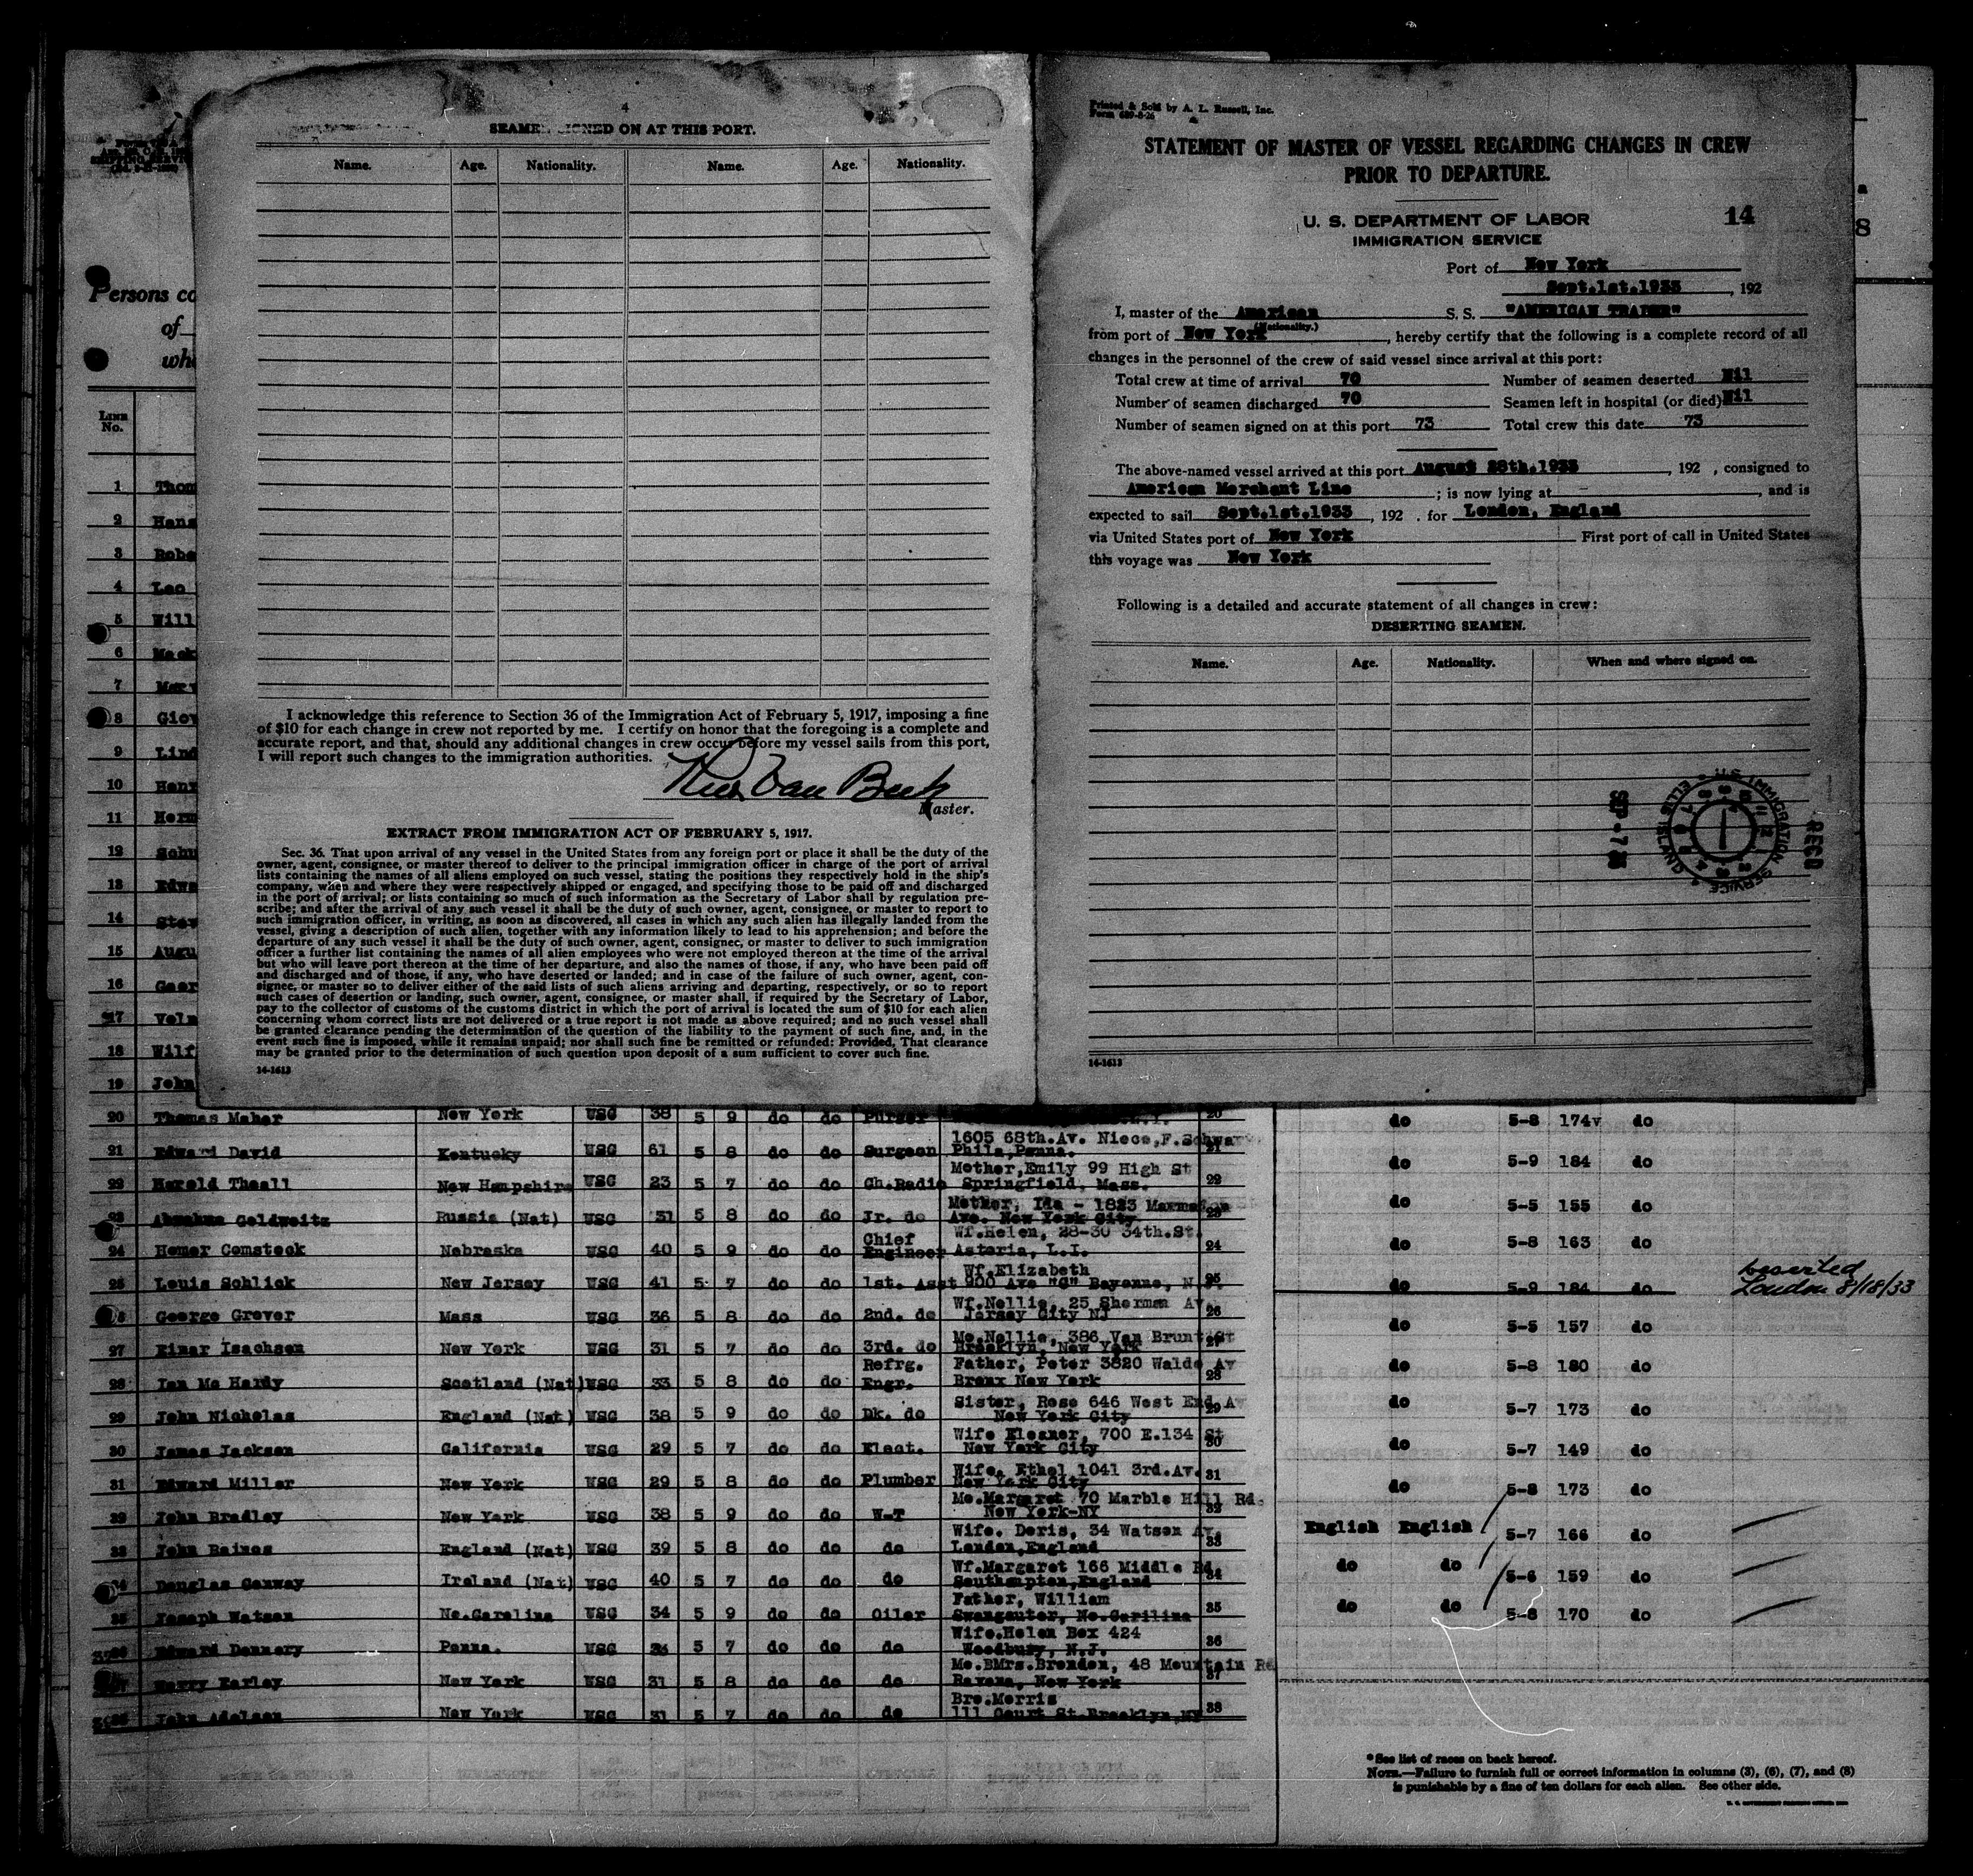 4
SEAMEN SIGNED ON AT THIS PORT.
Name. Age. Nationality. Name. Age. Nationality.
I acknowledge this reference to Section 36 of the Immigration Act of February 5, 1917, imposing a fine
of $10 for each change in crew not reported by me. I certify on honor that the foregoing is a complete and
accurate report, and that, should any additional changes in crew occur before my vessel sails from this port,
I will report such changes to the immigration authorities.
Master.
EXTRACT FROM IMMIGRATION ACT OF FEBRUARY 5, 1917.
Sec. 36. That upon arrival of any vessel in the United States from any foreign port or place it shall be the duty of the
owner, agent, consignee, or master thereof to deliver to the principal immigration officer in charge of the port of arrival
lists containing the names of all aliens employed on such vessel, stating the positions they respectively hold in the ship's
company, when and where they were respectively shipped or engaged, and specifying those to be paid off and discharged
in the port of arrival; or lists containing so much of such information as the Secretary of Labor shall by regulation pre-
scribe; and after the arrival of any such vessel it shall be the duty of such owner, agent, consignee, or master to report to
such immigration officer, in writing, as soon as discovered, all cases in which any such alien has illegally landed from the
vessel, giving a description of such alien, together with any information likely to lead to his apprehension; and before the
departure of any such vessel it shall be the duty of such owner, agent, consignee, or master to deliver to such immigration
officer a further list containing the names of all alien employees who were not employed thereon at the time of the arrival
but who will leave port thereon at the time of her departure, and also the names of those, if any, who have been paid off
and discharged and of those, if any, who have deserted or landed; and in case of the failure of such owner, agent, con-
signee, or master so to deliver either of the said lists of such aliens arriving and departing, respectively, or so to report
such cases of desertion or landing, such owner, agent, consignee, or master shall, if required by the Secretary of Labor,
pay to the collector of customs of the customs district in which the port of arrival is located the sum of $10 for each alien
concerning whom correct lists are not delivered or a true report is not made as above required; and no such vessel shall
be granted clearance pending the determination of the question of the liability to the payment of such fine, and, in the
event such fine is imposed, while it remains unpaid; nor shall such fine be remitted or refunded: Provided, That clearance
may be granted prior to the determination of such question upon deposit of a sum sufficient to cover such fine.
14-1613
Printed & Sold by A. L. Russell, Inc.
Form 689-8-26
STATEMENT OF MASTER OF VESSEL REGARDING CHANGES IN CREW
PRIOR TO DEPARTURE.
U. S. DEPARTMENT OF LABOR 14
IMMIGRATION SERVICE
Port of New York
Sept.1st.1933, 192
I, master of the American S. S. "AMERICAN TRADER"
(Nationality.)
from port of New York, hereby certify that the following is a complete record of all
changes in the personnel of the crew of said vessel since arrival at this port:
Total crew at time of arrival 70 Number of seamen deserted Nil
Number of seamen discharged 70 Seamen left in hospital (or died) Nil
Number of seamen signed on at this port 73 Total crew this date 73
The above-named vessel arrived at this port August 28th.1933, 192 , consigned to
American Merchant Line; is now lying at , and is
expected to sail Sept.1st.1933, 192 . for London, England
via United States port of New York First port of call in United States
this voyage was New York
Following is a detailed and accurate statement of all changes in crew:
DESERTING SEAMEN.
Name. Age. Nationality. When and where signed on.
U.S. IMMIGRATION SERVICE ELLIS ISLAND
RECD
SEP - 7 33
14-1613
Persons co
of
who
LINE
No.
1 Thom
2 Hans
3 Robe
4 Leo
5 Will
6 Mack
7 Merv
8 Giov
9 Lind
10 Henr
11 Herm
12 Schu
13 Edwa
14 Stev
15 Augu
16 Geor
17 Velm
18 Wilf
19 John
20 Thomas Maher New York USC 38 5 9 do do Purser 20 do 5-8 174v do
1605 68th.Av. Niece,F.Schwar
21 Edward David Kentucky USC 61 5 8 do do Surgeon Phila,Penna. 21 do 5-9 184 do
Mother,Emily 99 High St
22 Harold Theall New Hampshire USC 23 5 7 do do Ch.Radio Springfield, Mass. 22 do 5-5 155 do
Mother, Ida - 1823
23 Abrahma Goldweitz Russia (Nat) USC 31 5 8 do do Jr. do Ave. New York City 23
Chief Wf.Helen, 28-30 34th.St.
24 Homer Comstock Nebraska USC 40 5 9 do do Engineer Astoria, L.I. 24 do 5-8 163 do
Wf.Elizabeth
25 Louis Schlick New Jersey USC 41 5 7 do do 1st. Asst 900 Ave "C" Bayonne, N.J. 25 do 5-9 184 do Deserted London 8/18/33
Wf.Nellie, 25 Sherman Av
26 George Grover Mass USC 36 5 8 do do 2nd. do Jersey City NJ 26 do 5-5 157 do
Mo.Nellie, 386 Van Brunt St
27 Einar Isachsen New York USC 31 5 7 do do 3rd. do Brooklyn, New York 27
Refrg. Father, Peter 3820 Waldo Av
28 Ian Mc Hardy Scotland (Nat) USC 33 5 8 do do Engr. Bronx New York 28 do 5-8 180 do
Sister, Rose 646 West End Av
29 John Nicholas England (Nat) USC 38 5 9 do do Dk. do New York City 29 do 5-7 173 do
Wife Eleanor, 700 E.134 St
30 James Jackson California USC 29 5 7 do do Elect. New York City 30 do 5-7 149 do
Wife. Ethel 1041 3rd.Av.
31 Edward Miller New York USC 29 5 8 do do Plumber New York City 31 do 5-8 173 do
Mo.Margaret 70 Marble Hill Rd.
32 John Bradley New York USC 38 5 9 do do W-T New York-NY 32 English English 5-7 166 do
Wife. Doris, 34 Watson Av.
33 John Baines England (Nat) USC 39 5 8 do do do London,England 33
Wf.Margaret 166 Middle Rd.
34 Douglas Conway Ireland (Nat) USC 40 5 7 do do do Southampton,England 34 do do 5-6 159 do
Father, William
35 Joseph Watson No.Carolina USC 34 5 9 do do Oiler Swanquater, No.Carilina 35 do do 5-8 170 do
Wife.Helen Box 424
36 Edward Dennery Penna. USC 36 5 7 do do do Woodbury, N.J. 36
Mo.BMrs.Brenden, 48 Mountain Rd
37 Harry Earley New York USC 31 5 8 do do do Ravena, New York 37
Bro.Morris
38 John Adelson New York USC 31 5 7 do do do 111 Court St.Brooklyn,NY 38
*See list of races on back hereof.
NOTE.—Failure to furnish full or correct information in columns (3), (6), (7), and (8)
is punishable by a fine of ten dollars for each alien. See other side.
8